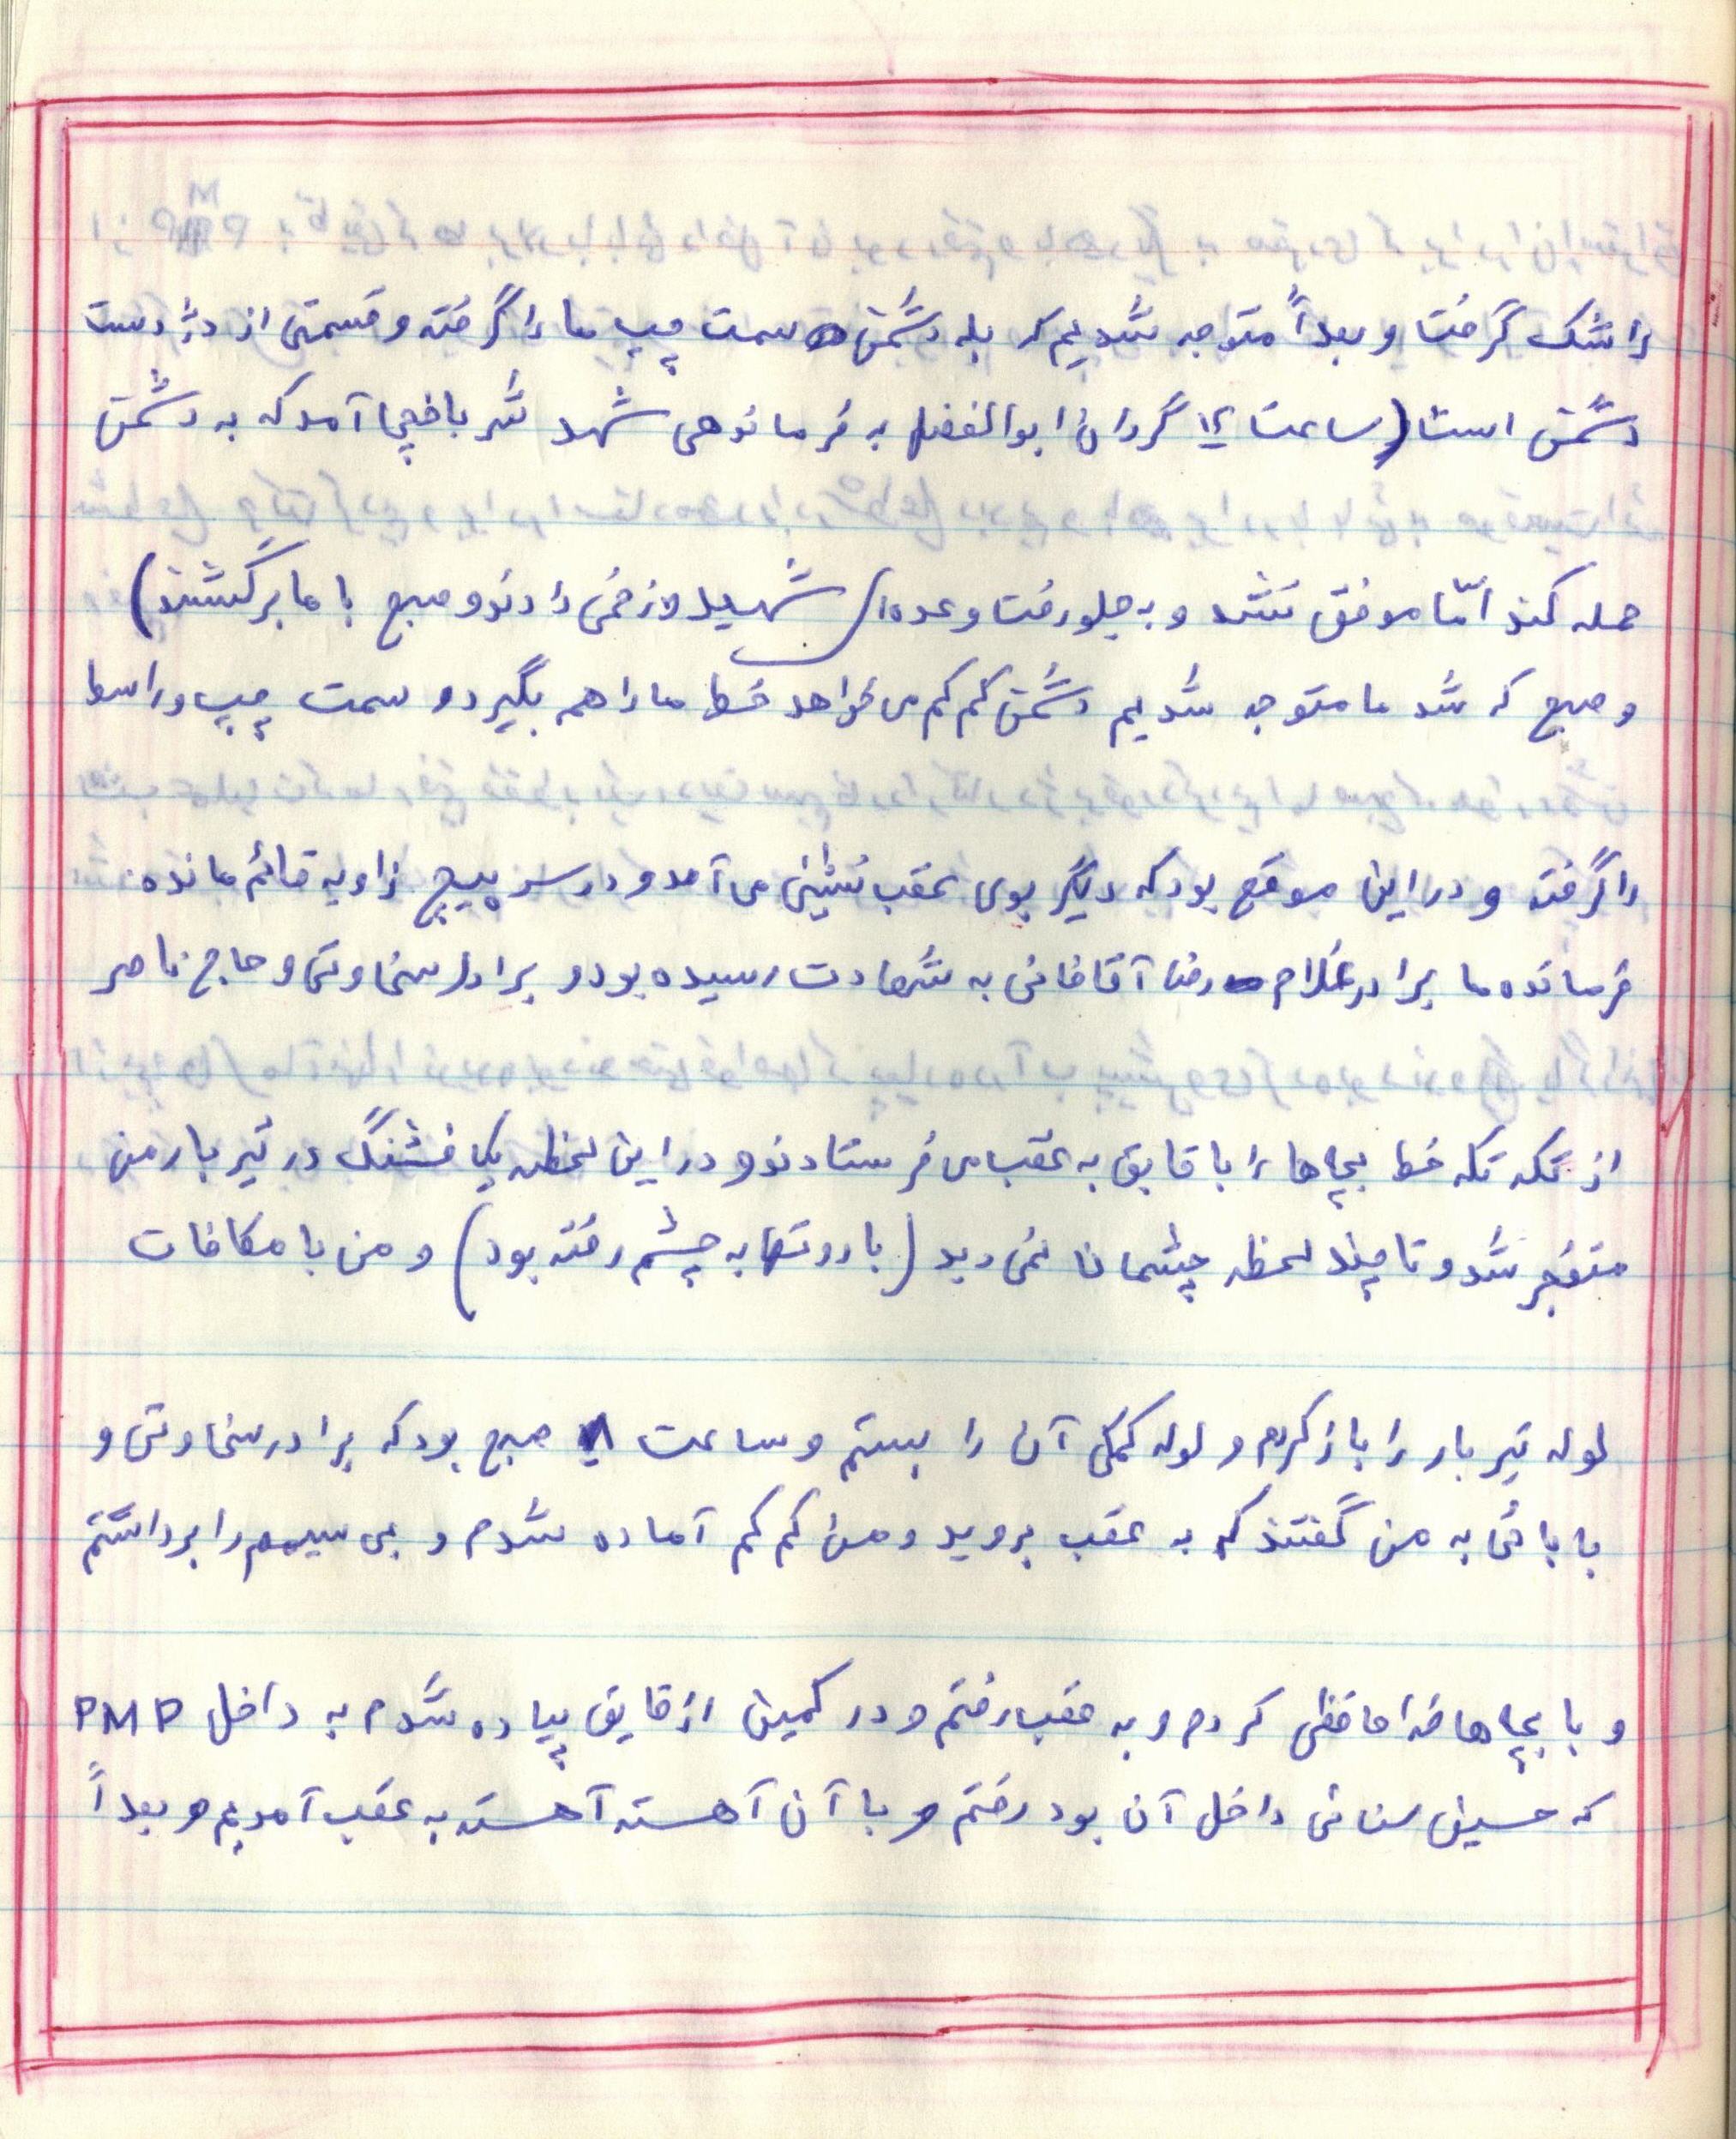 را شک گرفت و بعداً متوجه شدیم که بله دشمن سمت چپ ما را گرفته و قسمتی از دژ دست
دشمن است (ساعت ۱۲ گردان ابوالفضل به فرماندهی شهد شیر باغچی آمد که به دشمن
حمله کند امّا موفق نشد و به جلو رفت و عده‌ای شهید و زخمی دادند و صبح با ما برگشتند)
و صبح که شد ما متوجه شدیم دشمن کم کم می خواهد خط ما را هم بگیرد و سمت چپ وراسط
را گرفته و در این موقع بود که دیگر بوی عقب نشینی می آمد و در سر پیچ زاویه قائم مانده
فرمانده ما برادر غلام رضا آقاخانی به شهادت رسیده بود و برادر سخاوتی و حاج ناصر
از تکه تکه خط بچه ها را با قایق به عقب می فرستادند و در این لحظه یک فشنگ در تیربار من
منفجر شد و تا چند لحظه چشمانم نمی دید (باروتها به چشم رفته بود) و من با مکافات
لوله تیربار را باز کردم و لوله کمکی آن را بستم و ساعت ۸ صبح بود که برادر سخاوتی و
بابائی به من گفتند که به عقب بروید و من کم کم آماده شدم و بی سیمم را برداشتم
و با بچه ها خداحافظی کردم و به عقب رفتم و در کمین از قایق پیاده شدم به داخل PMP
که حسین سنائی داخل آن بود رفتم و با آن آهسته آهسته به عقب آمدیم و بعداً